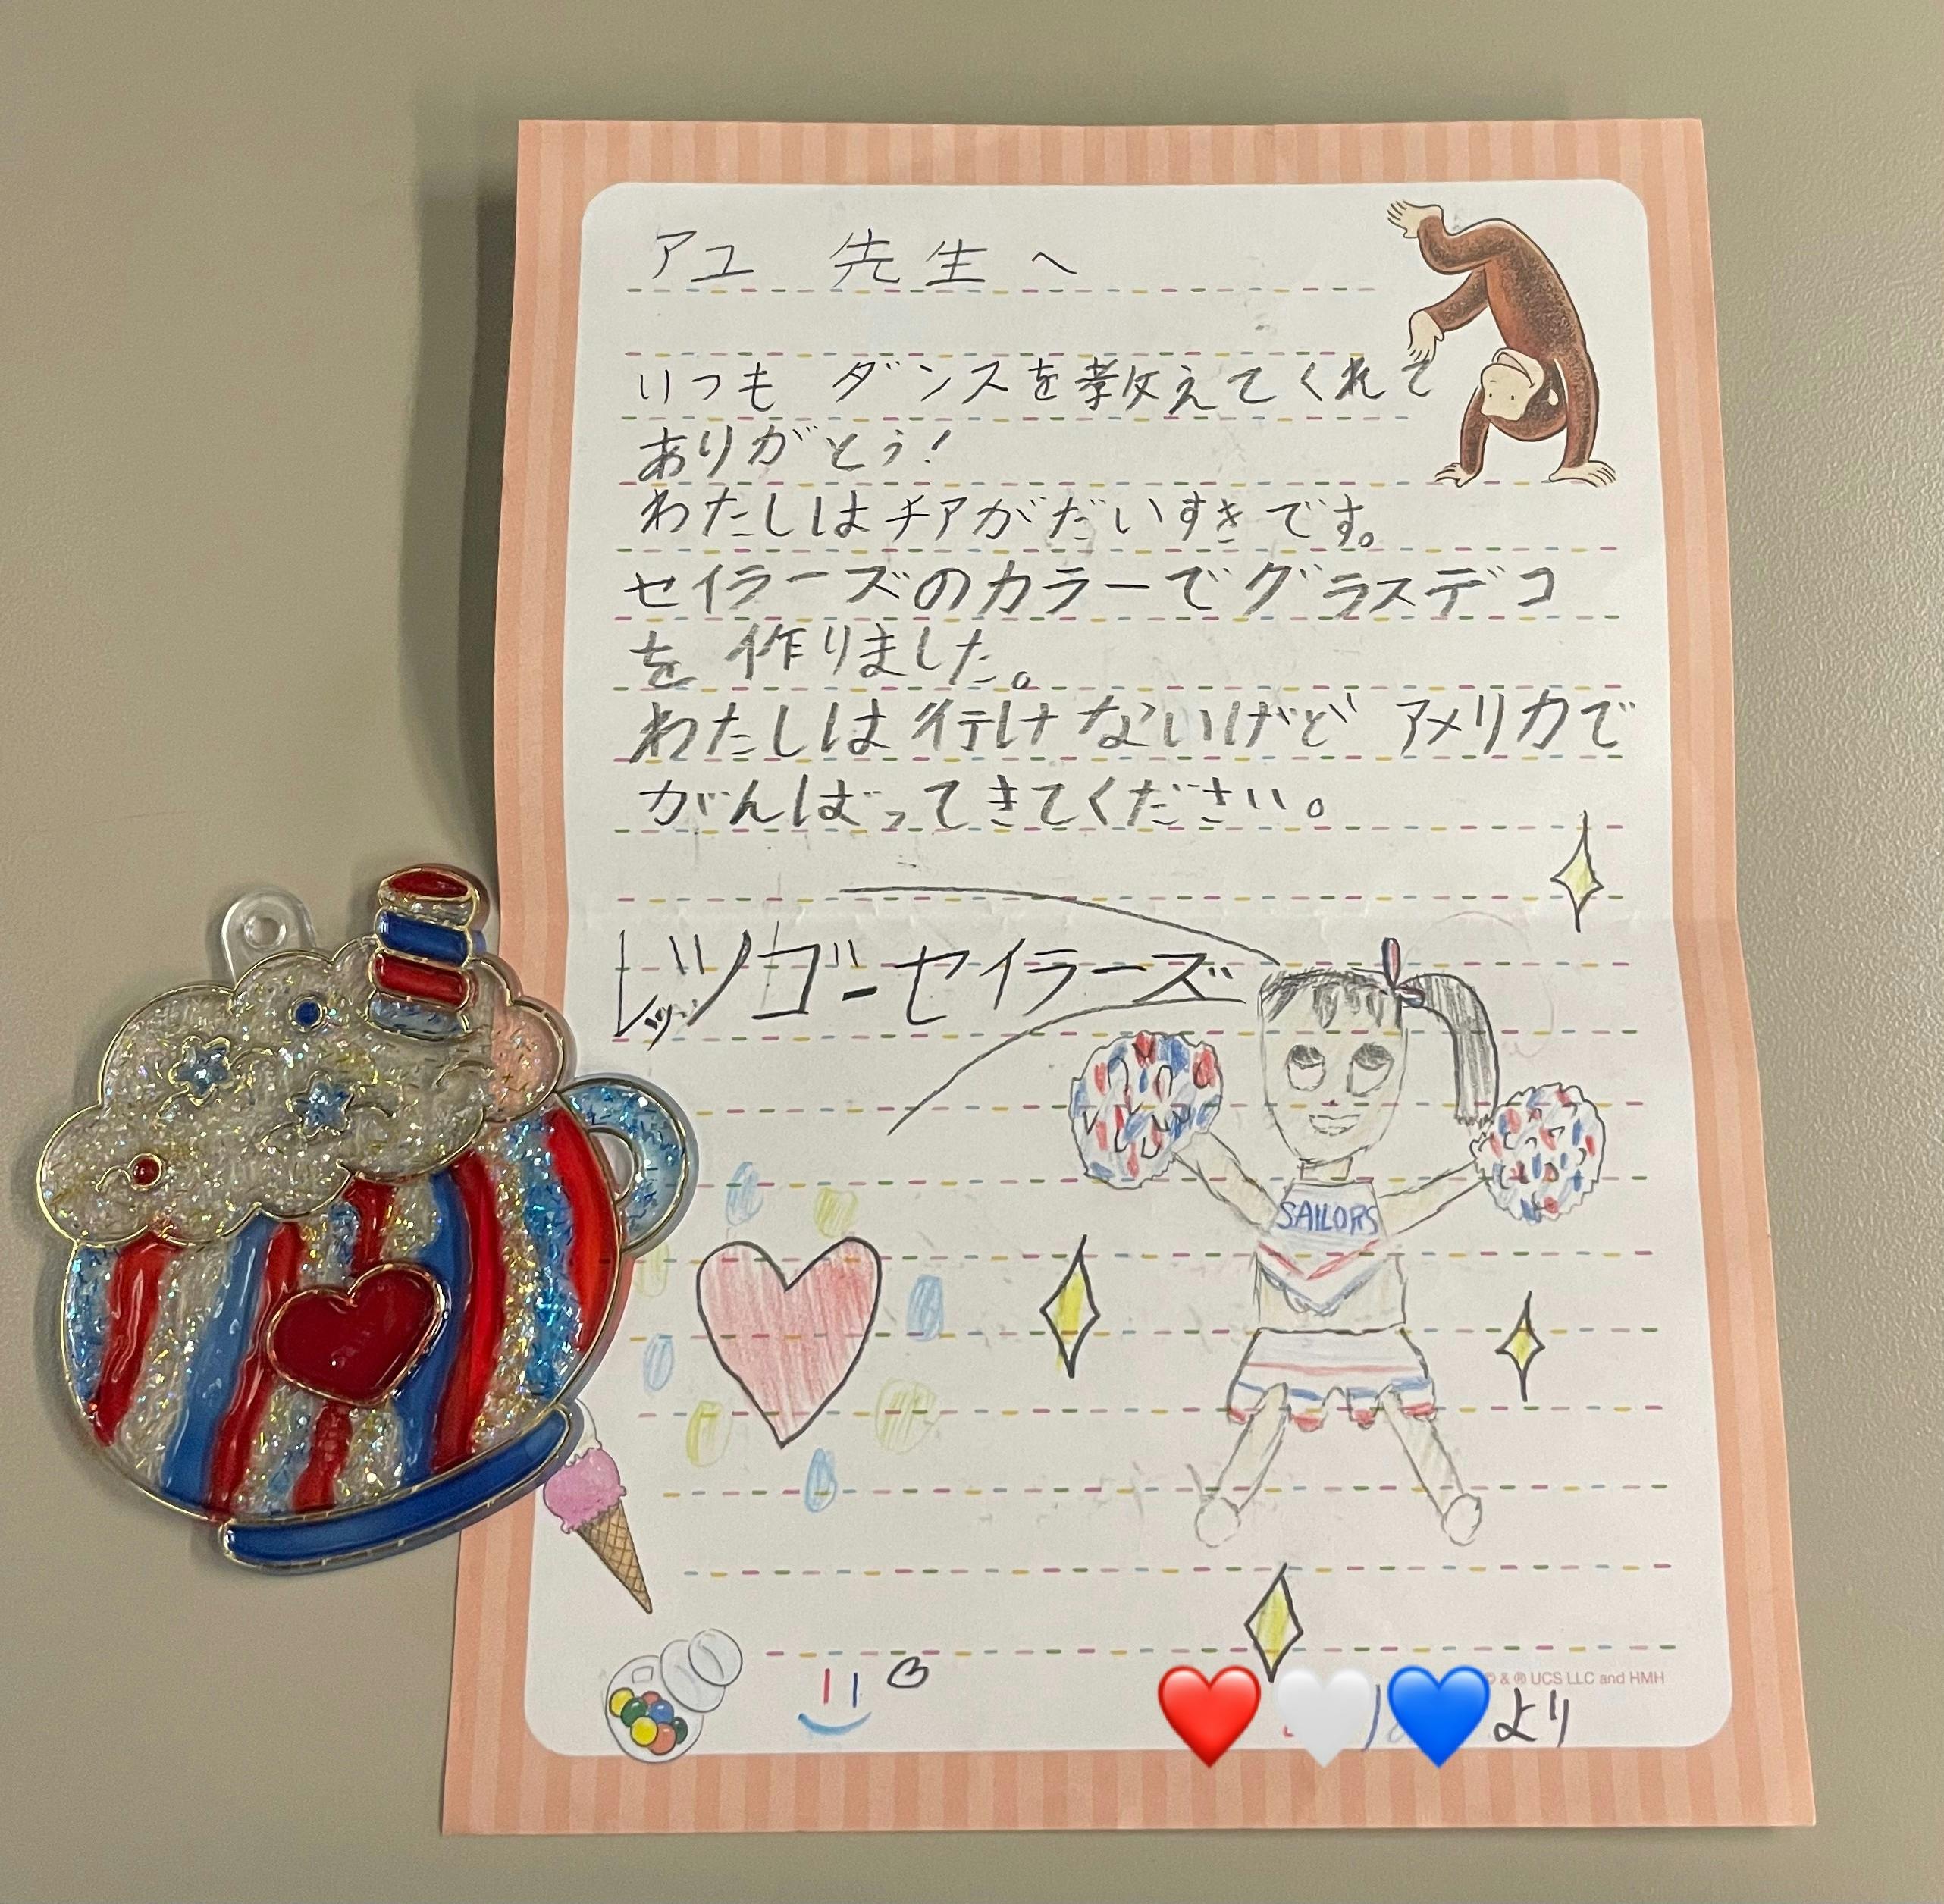 アユ 先生へ
いつも ダンスを教えてくれて
ありがとう!
わたしはチアがだいすきです。
セイラーズのカラーでグラスデコ
を 作りました。
わたしは行けないけど アメリカで
がんばってきてください。
レッツゴーセイラーズ
SAILORS
© & ® UCS LLC and HMH
より